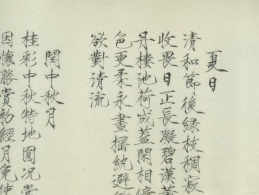 夏日
清和節後綠枝稠寂
收畏日正長凝碧漢薰
丹樓池荷成蓋閑相倚
色更柔永晝搖紈避
欲對清流
閏中秋月
桂彩中秋特地圓況當
因懷勝賞初經月免使